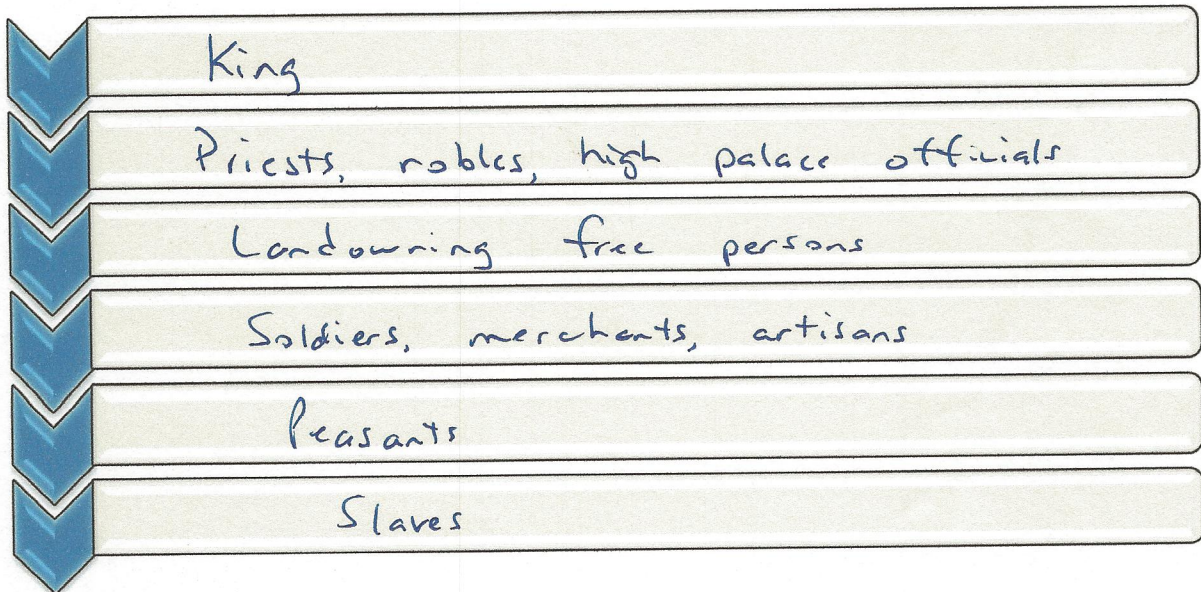 King
Priests, nobles, high palace officials
Landowning free persons
Soldiers, merchants, artisans
Peasants
Slaves